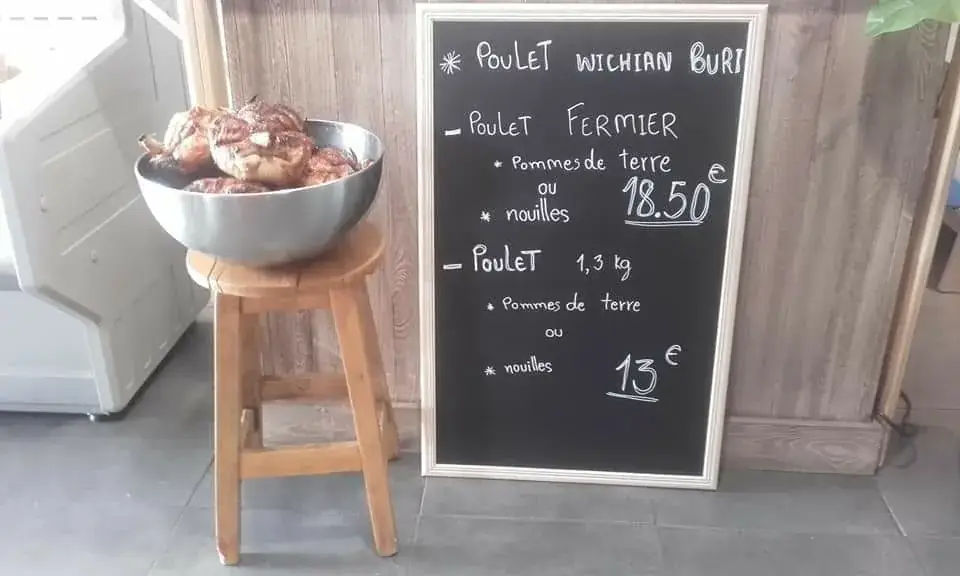 * POULET WICHIAN BURI
- POULET FERMIER
* Pommes de terre
ou
* nouilles 18.50€
- POULET 1,3 kg
* Pommes de terre
ou
* nouilles 13€